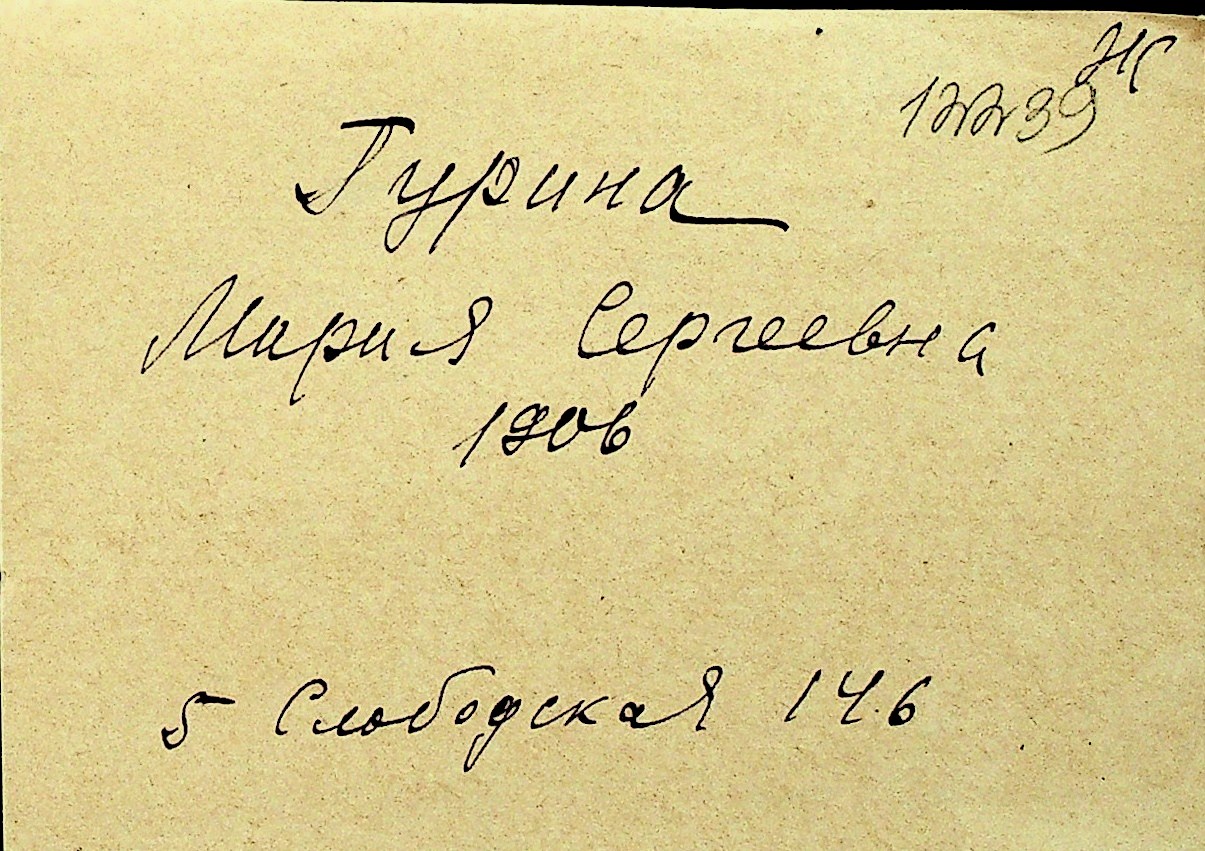 12239 НК
Гурина
Мария Сергеевна
1906
5 Слободская 146